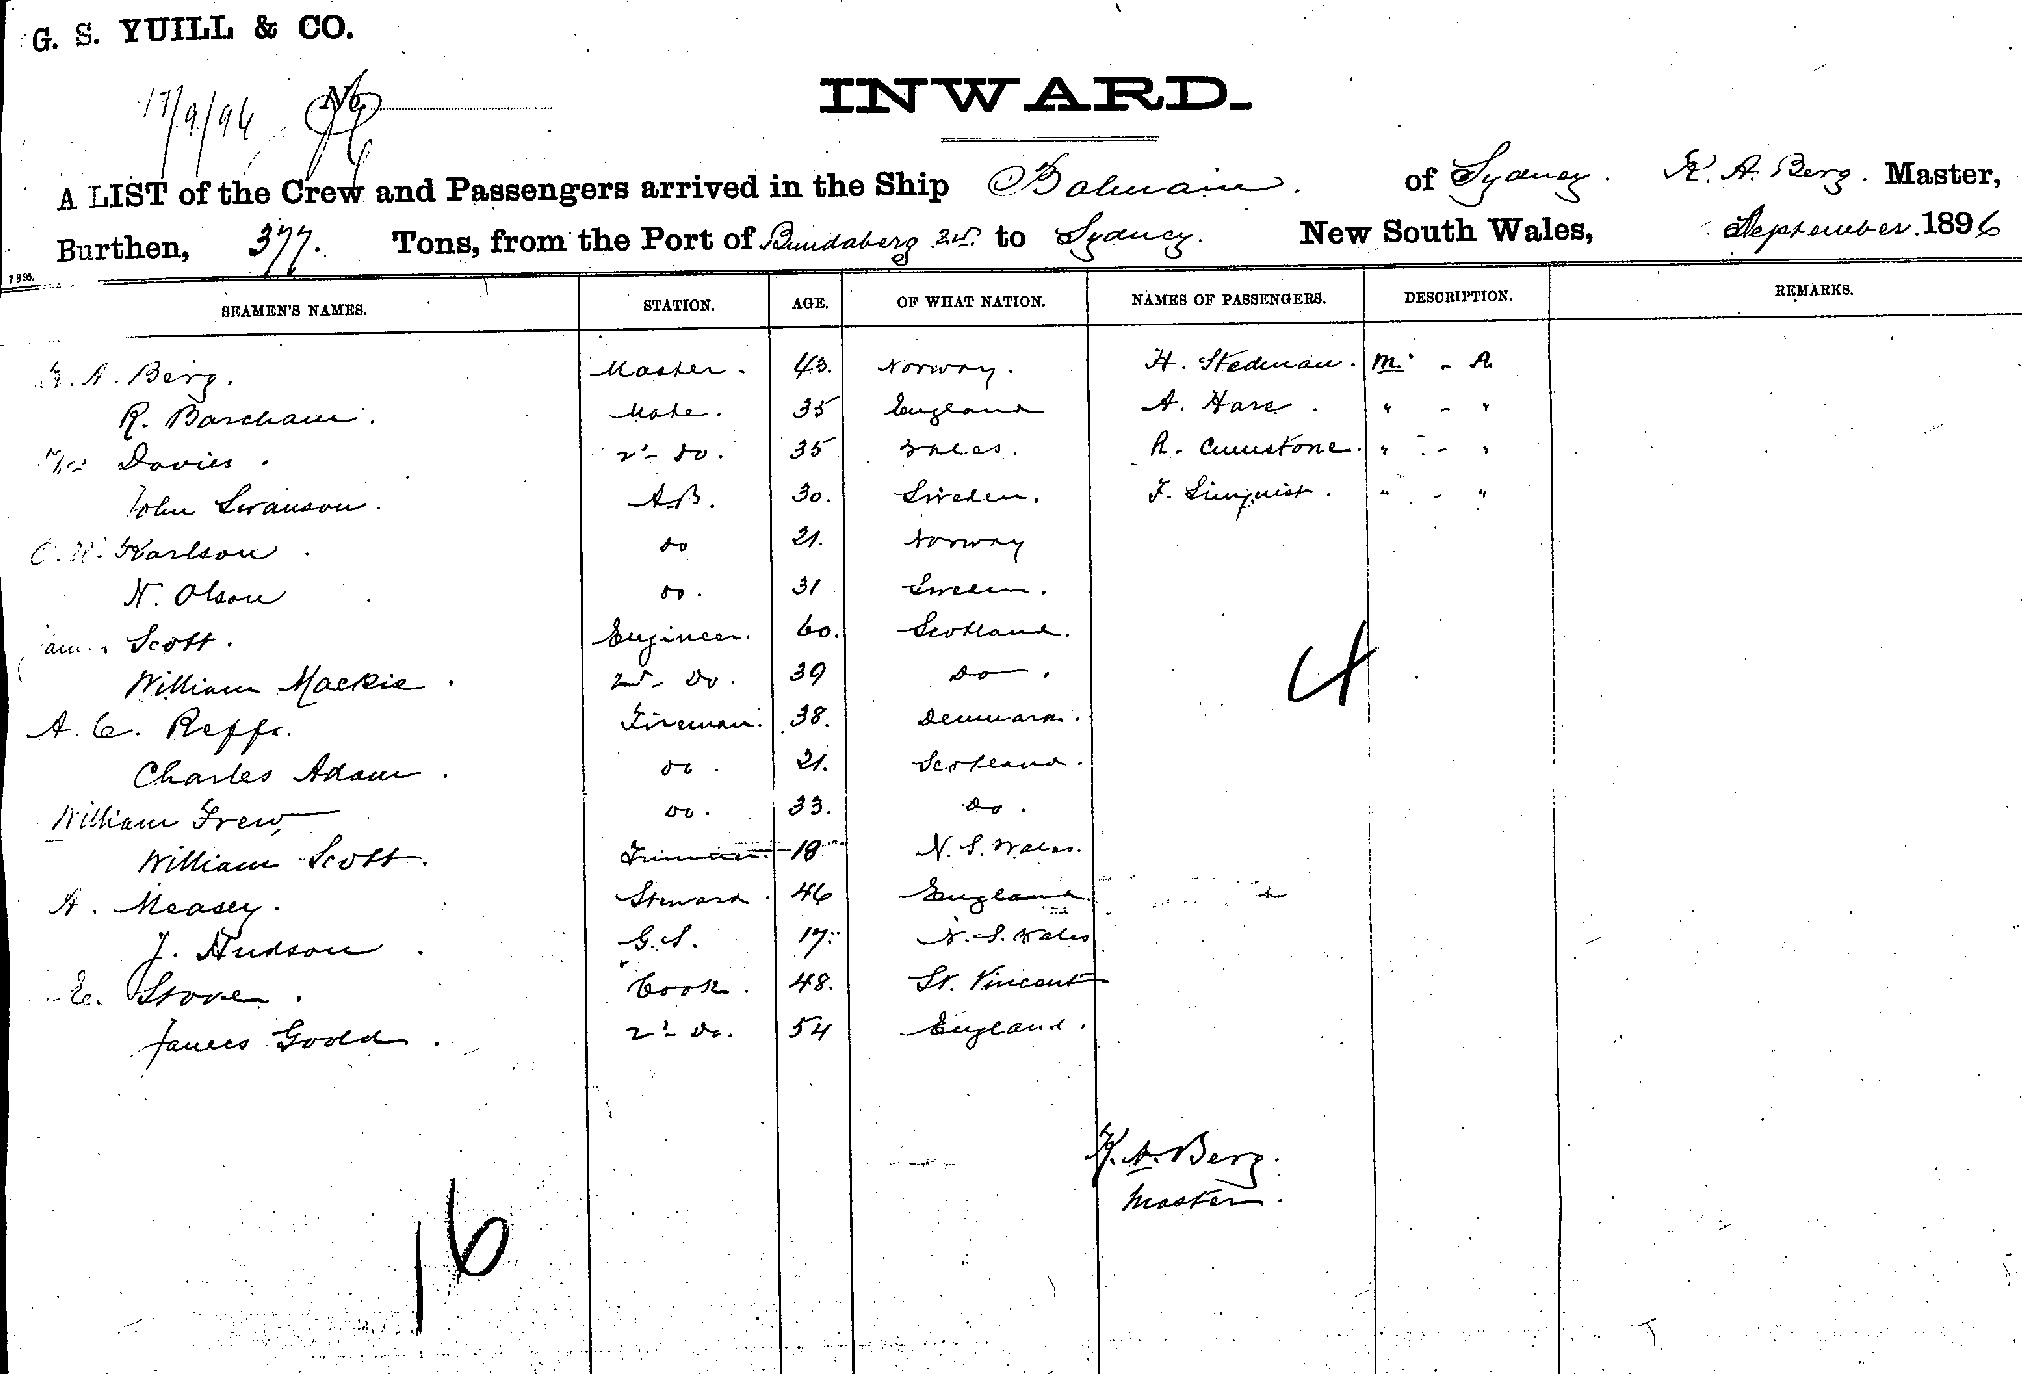 G. S. YUILL & CO.
17/9/96 No
INWARD.
A LIST of the Crew and Passengers arrived in the Ship Balmain. of Sydney. K. A. Berg. Master,
Burthen, 377. Tons, from the Port of Bundaberg to Sydney. New South Wales, September 1896
SEAMEN'S NAMES. STATION. AGE. OF WHAT NATION. NAMES OF PASSENGERS. DESCRIPTION. REMARKS.
A. Berg. Master. 43. Norway. H. Stedman. M. - A
R. Barcham. Mate. 35 England A. Hare. " - "
Davies. 2d do. 35 Wales. R. " - "
John Swanson. AB. 30. Sweden. F. " - "
Karlson. do 21. Norway
N. Olson do. 31 Sweden.
Scott. Engineer. 60. Scotland.
William Mackie. 2nd Do. 39 Do.
A. C. Reffs. Fireman. 38. Denmark.
Charles Adam. do. 21. Scotland.
William Frew do. 33. Do.
William Scott. Trimmer. 18 N. S. Wales.
A. Measey. Steward. 46 England
J. Hudson. G.S. 17. N. S. Wales
E. Stove. Cook. 48. St. Vincent
James Goold. 2d Do. 54 England.
4
K. A. Berg.
Master.
16